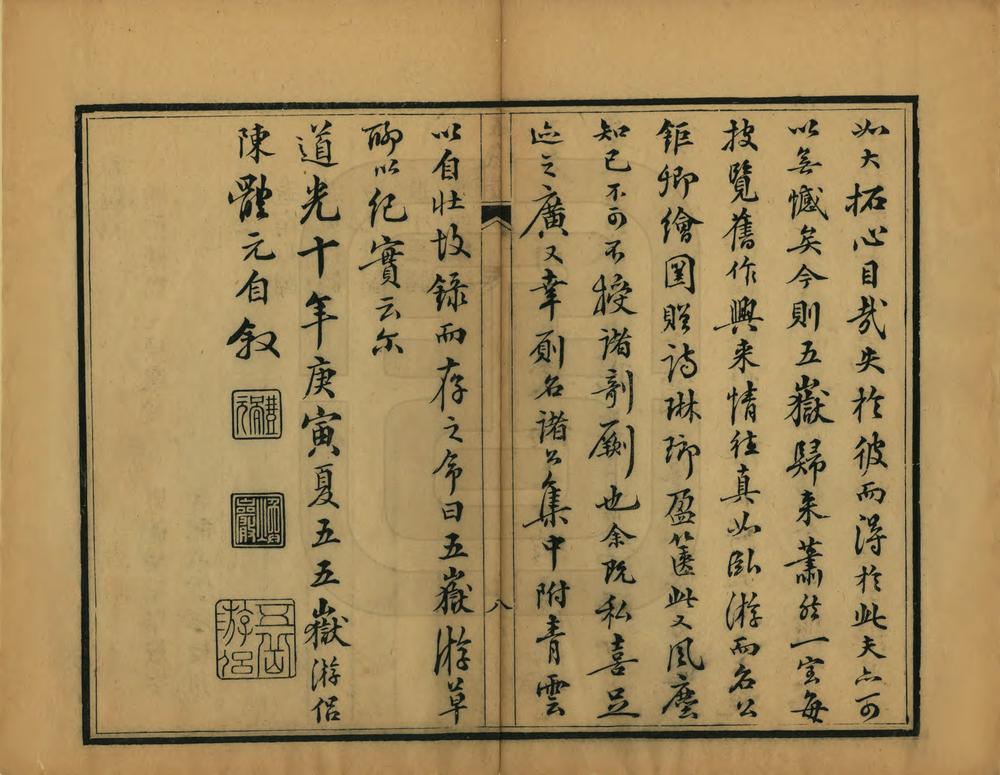 如大拓心目哉失於彼而得於此夫亦可
以無憾矣今則五嶽歸来蕭然一室每
披覽舊作興来情往真如臥游而名公
鉅卿繪圖贈詩琳瑯盈篋此又風塵
知己不可不授諸剞劂也余既私喜足
迹之廣又幸厠名諸公集中附青雲
以自壯故錄而存之命曰五嶽游草
聊以纪實云尔
道光十年庚寅夏五五嶽游侶
陳體元自叙
八
體元
五岳游侶